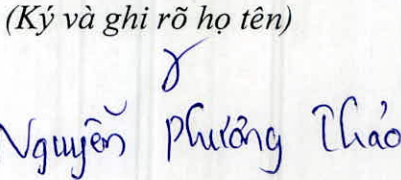 (Ký và ghi rõ họ tên)
Nguyễn Phương Thảo